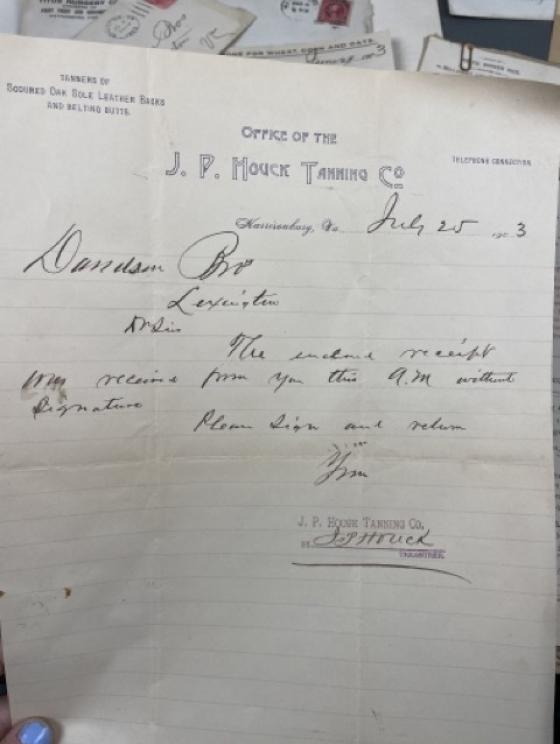 TANNERS OF
SCOURED OAK SOLE LEATHER BACKS
AND BELTING BUTTS.
OFFICE OF THE
J. P. HOUCK TANNING CO
TELEPHONE CONNECTION
Harrisonburg, Va. July 25 190 3
Davidson Bro
Lexington
Dr Sirs
The enclosed receipt
was received from you this A.M without
signature
Please sign and return
Yours
J. P. HOUCK TANNING CO.
BY J P Houck
TREASURER.
FOR WHEAT, CORN AND OATS.